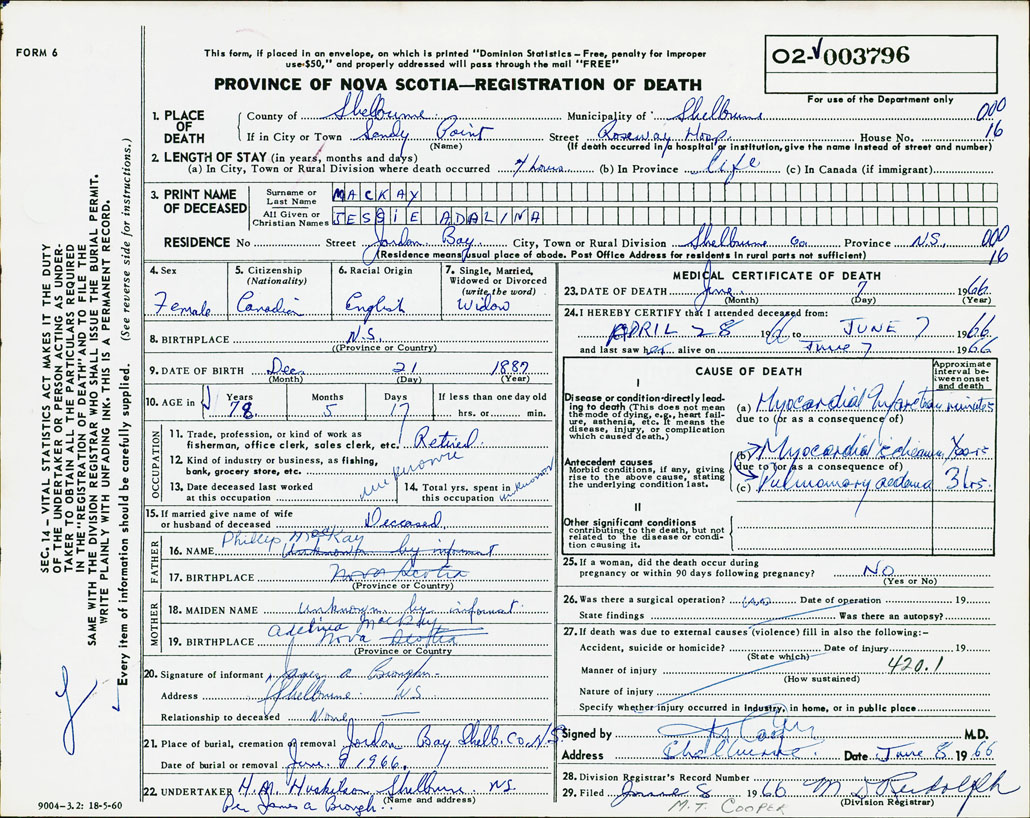 FORM 6
This form, if placed in an envelope, on which is printed "Dominion Statistics – Free, penalty for improper
use $50," and properly addressed will pass through the mail "FREE"
PROVINCE OF NOVA SCOTIA—REGISTRATION OF DEATH
02-003796
For use of the Department only
1. PLACE OF DEATH County of Shelburne Municipality of Shelburne 000
If in City or Town Sandy Point Street Roseway Hosp. House No. 16
(Name) (If death occurred in a hospital or institution, give the name instead of street and number)
2. LENGTH OF STAY (in years, months and days)
(a) In City, Town or Rural Division where death occurred hours (b) In Province Life (c) In Canada (if immigrant)
3. PRINT NAME OF DECEASED Surname or Last Name MACKAY
All Given or Christian Names JESSIE ADALINA
RESIDENCE No Street Jordan Bay City, Town or Rural Division Shelburne Co Province N.S. 000
(Residence means usual place of abode. Post Office Address for residents in rural parts not sufficient) 16
4. Sex Female
5. Citizenship (Nationality) Canadian
6. Racial Origin English
7. Single, Married, Widowed or Divorced (write the word) Widow
8. BIRTHPLACE N.S.
(Province or Country)
9. DATE OF BIRTH Dec 21 1887
(Month) (Day) (Year)
10. AGE in Years 78 Months 5 Days 17 If less than one day old hrs. or min.
OCCUPATION
11. Trade, profession, or kind of work as fisherman, office clerk, sales clerk, etc. Retired
12. Kind of industry or business, as fishing, bank, grocery store, etc. unknown
13. Date deceased last worked at this occupation
14. Total yrs. spent in this occupation unknown
15. If married give name of wife or husband of deceased Deceased
FATHER
Phillip MacKay
16. NAME Unknown by informant
17. BIRTHPLACE Nova Scotia
(Province or Country)
MOTHER
18. MAIDEN NAME unknown by informant
Adelina Mackay
19. BIRTHPLACE Nova Scotia
(Province or Country)
20. Signature of informant James A Brough
Address Shelburne NS
Relationship to deceased None
21. Place of burial, cremation or removal Jordan Bay Shelb. Co, N.S.
Date of burial or removal June 9 1966
22. UNDERTAKER H.M. Huskilson Shelburne NS.
Per James A Brough (Name and address)
9004–3.2: 18-5-60
MEDICAL CERTIFICATE OF DEATH
23. DATE OF DEATH June 7 1966
(Month) (Day) (Year)
24. I HEREBY CERTIFY that I attended deceased from:
APRIL 28 19 to JUNE 7 1966
and last saw her alive on JUNE 7 1966
CAUSE OF DEATH
Approximate interval between onset and death
I
Disease or condition directly leading to death (This does not mean the mode of dying, e.g., heart failure, asthenia, etc. It means the disease, injury, or complication which caused death.)
(a) Myocardial Infarction minutes
due to (or as a consequence of)
Antecedent causes
Morbid conditions, if any, giving rise to the above cause, stating the underlying condition last.
(b) Myocardial ischaemia
due to (or as a consequence of)
(c) Pulmonary oedema 3 hrs.
II
Other significant conditions contributing to the death, but not related to the disease or condition causing it.
25. If a woman, did the death occur during pregnancy or within 90 days following pregnancy? NO
(Yes or No)
26. Was there a surgical operation? Date of operation 19
State findings Was there an autopsy?
27. If death was due to external causes (violence) fill in also the following:–
Accident, suicide or homicide? Date of injury 19
(State which)
Manner of injury 420.1
(How sustained)
Nature of injury
Specify whether injury occurred in industry, in home, or in public place
Signed by M.D.
Address Shelburne Date June 8 1966
28. Division Registrar's Record Number
29. Filed June 8 1966 M T Rudolph
M.T. COOPER (Division Registrar)
SEC. 14 – VITAL STATISTICS ACT MAKES IT THE DUTY
OF THE UNDERTAKER OR PERSON ACTING AS UNDER-
TAKER TO OBTAIN ALL THE PARTICULARS REQUIRED
IN THE "REGISTRATION OF DEATH" AND TO FILE THE
SAME WITH THE DIVISION REGISTRAR WHO SHALL ISSUE THE BURIAL PERMIT.
WRITE PLAINLY WITH UNFADING INK. THIS IS A PERMANENT RECORD.
Every item of information should be carefully supplied. (See reverse side for instructions.)